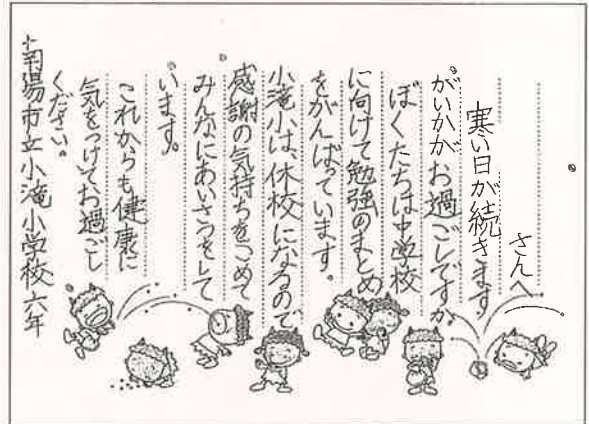 さんへ
寒い日が続きます
がいかがお過ごしですか。
ぼくたちは中学校
に向けて勉強のまとめ
をがんばっています。
小滝小は、休校になるので
感謝の気持ちをこめて
みんなにあいさつをして
います。
これからも健康に
気をつけてお過ごし
ください。
南陽市立小滝小学校六年